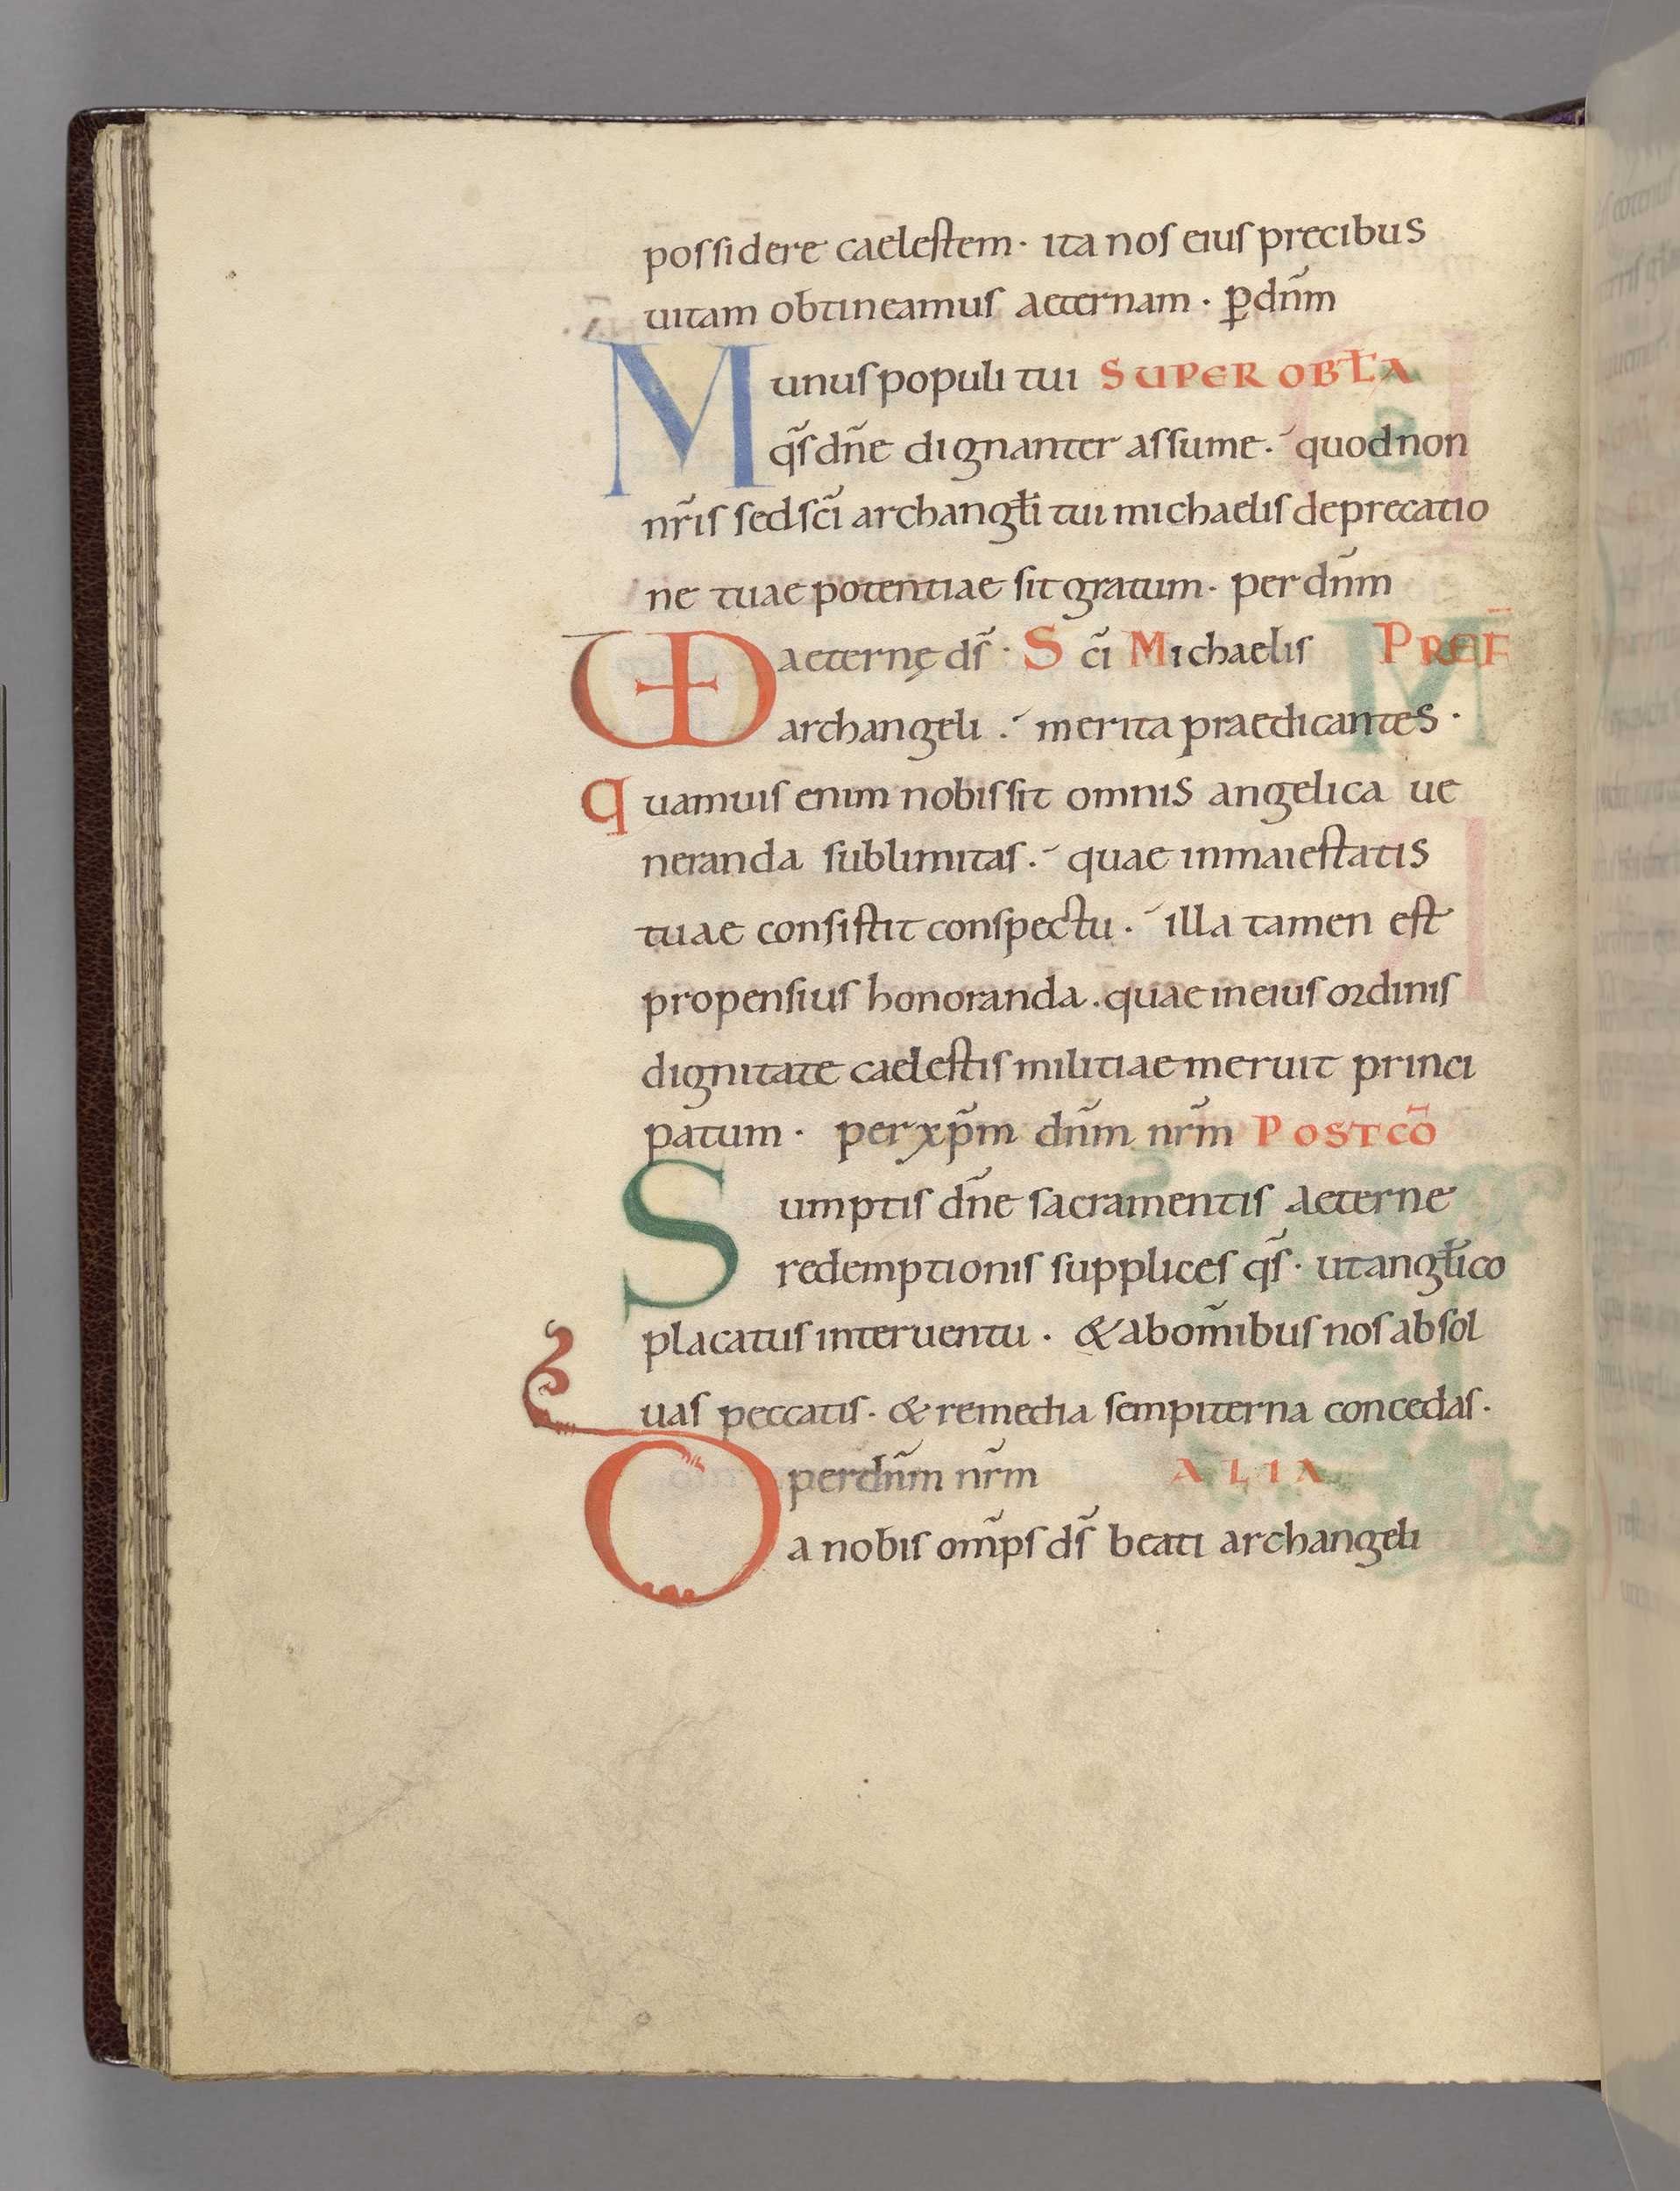 possidere caelestem · ita nos eius precibus
uitam obtineamus aeternam · ꝑ dñm
Munus populi tui SUPER OBŁA
q̃s dñe dignanter assume · quod non
nr̃is sed sc̃i archangłi tui michaelis deprecatio
ne tuae potentiae sit gratum · per dñm
VD aeternę ds̃ · Sc̃i Michaelis PREF̄
archangeli · merita praedicantes ·
quamuis enim nobis sit omnis angelica ue
neranda sublimitas · quae in maiestatis
tuae consistit conspectu · illa tamen est
propensius honoranda . quae in eius ordinis
dignitate caelestis militiae meruit princi
patum · per xp̃m dñm nr̃m POST CÕ
Sumptis dñe sacramentis aeterne
redemptionis supplices q̃s · ut angłico
placatus interuentu · & ab om̃ibus nos absol
uas peccatis · & remedia sempiterna concedas ·
per dñm nr̃m ALIA
Da nobis om̃ps ds̃ beati archangeli